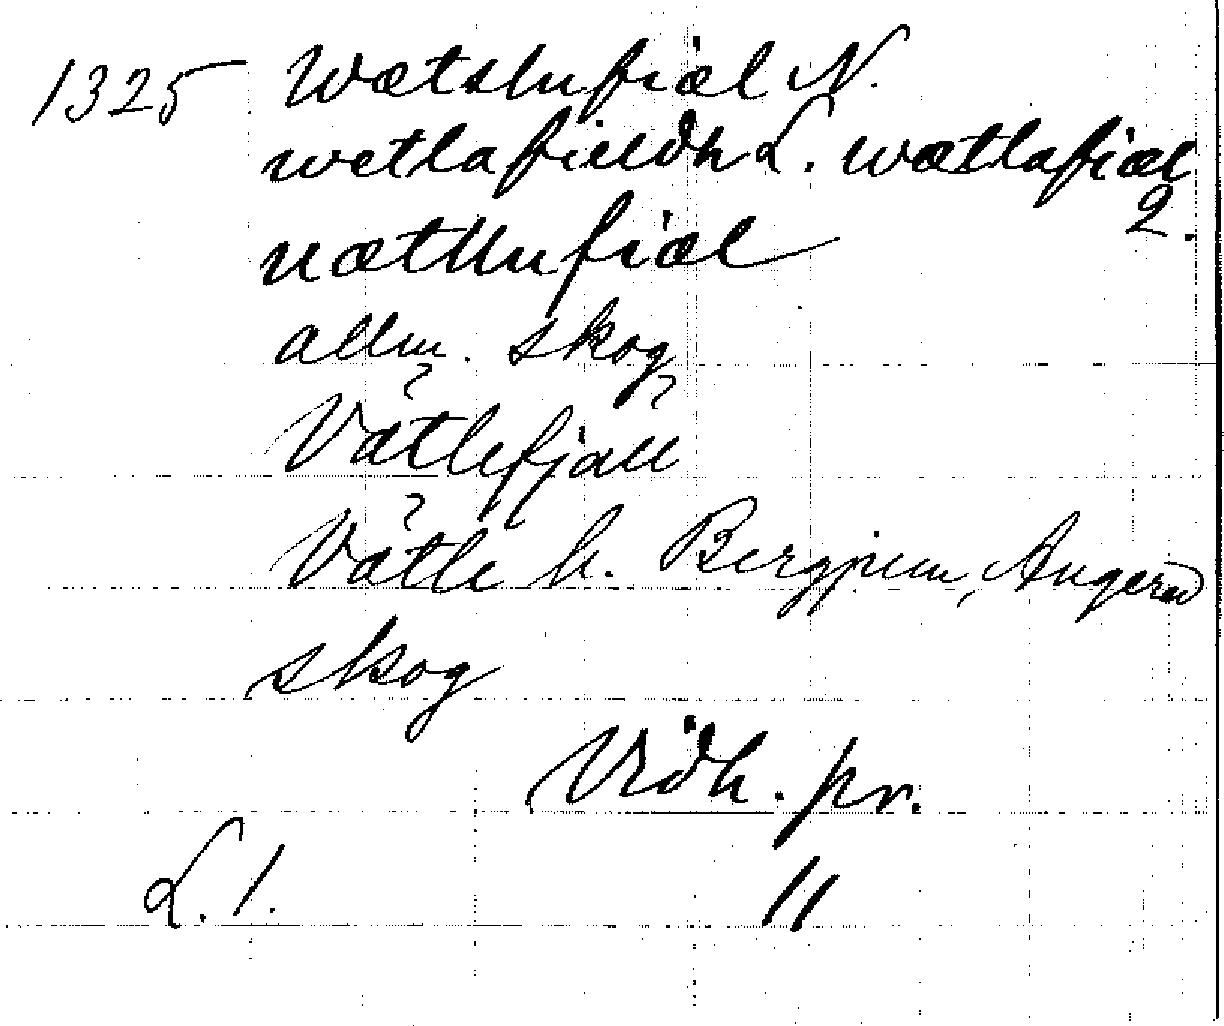 1325 Wætslufiæl N.
wetlafieldh L. wætlafiæl
2.
uætllufiæl
allm. skog
Vätlefjäll
Vätle h. Bergjum, Angered
skog
Vidh. pr.
L. 1. 11